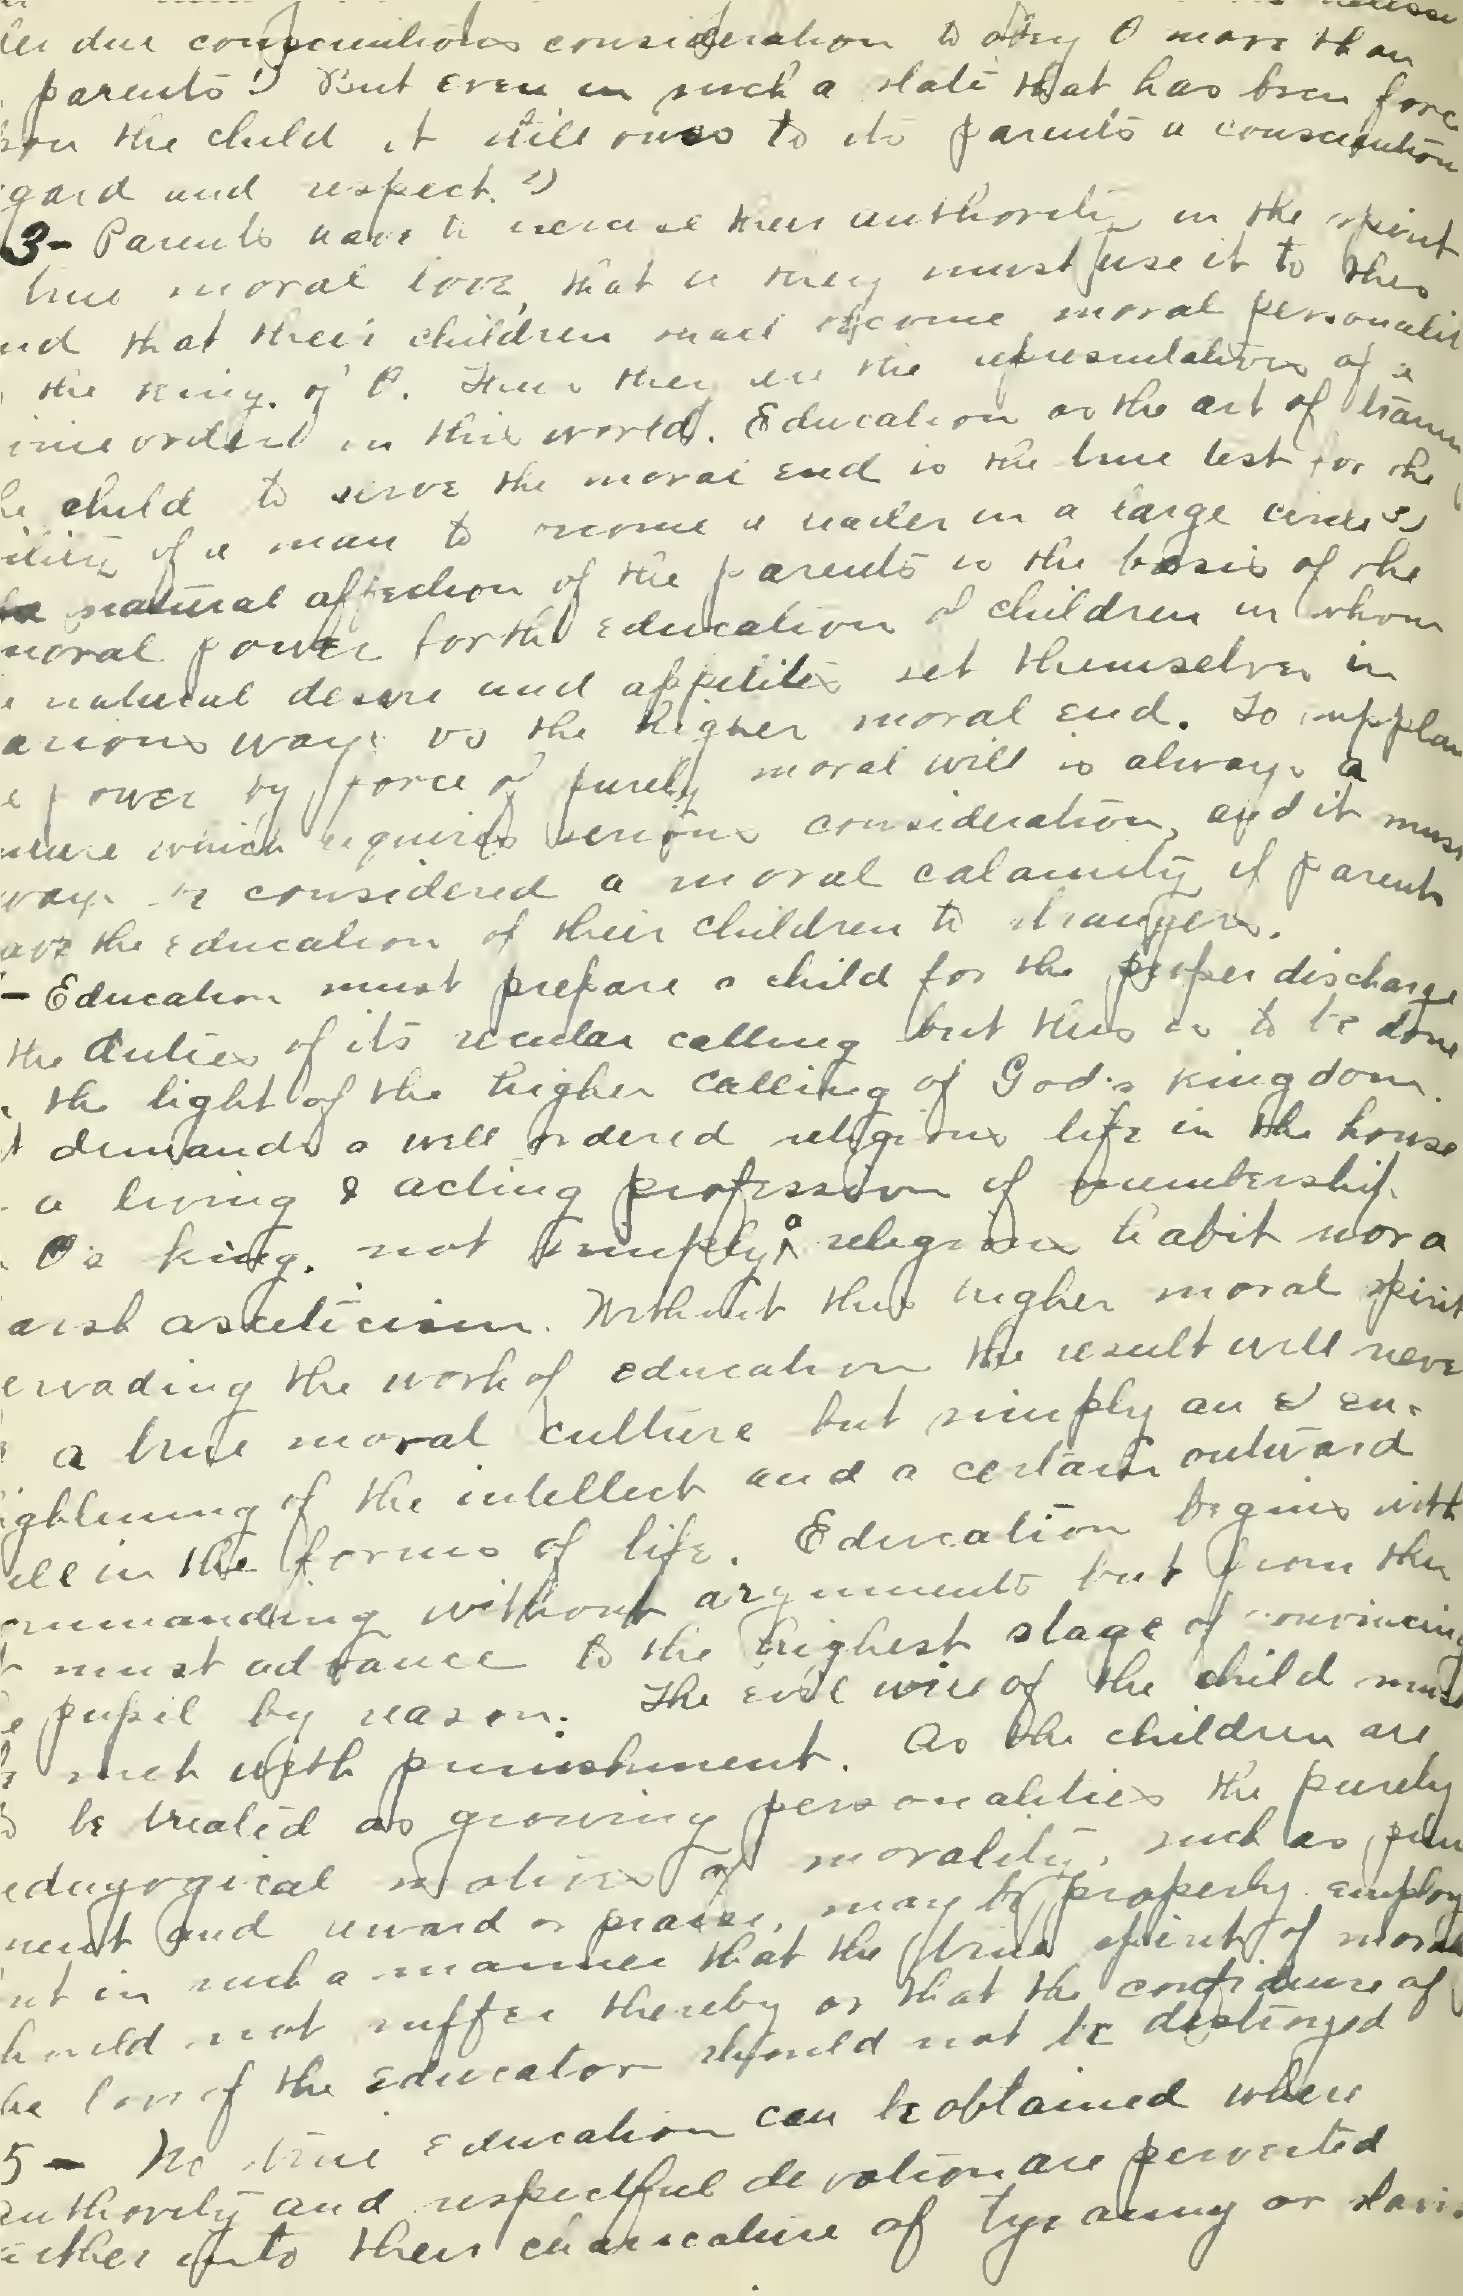 der due conscientious consideration to obey O more than
parents 1) But even in such a state that has been forc
pon the child it still owes to its parents a conscientiou
gard and respect. 2)
3- Parents have to exercise their authority in the spirit
true moral love, that is they must use it to this
nd that their children shall become moral personalit
the king. of O. Thus they are the representatives of a
vine order in this world. Education as the art of trainin
he child to serve the moral end is the true test for the
ility of a man to become a leader in a large circle 3)
natural affection of the parents is the basis of the
moral power for the education of children in whom
e natural desire and appetites set themselves in
arious ways vs the higher moral end. To supplan
e power by force of purely moral will is always a
ature which requires serious consideration, and it must
ways be considered a moral calamity if parents
ave the education of their children to strangers.
- Education must prepare a child for the proper discharge
the duties of its secular calling but this is to be done
the light of the higher calling of God's kingdom.
t demands a well ordered religious life in the house
a living & acting profession of membership
O's king. not simply a religious habit nor a
arsh asceticism. Without this higher moral spirit
ervading the work of education the result will neve
a true moral culture but simply an en-
ightening of the intellect and a certain outward
ill in the forms of life. Education begins with
ommanding without arguments but from this
t must advance to the highest stage of convincing
e pupil by reason. The evil will of the child must
met with punishment. As the children are
be treated as growing personalities the purely
edagogical motives of morality, such as pun
ment and reward or praise, may be properly employ
ut in such a manner that the true spirit of moral
hould not suffer thereby or that the confidence of
he love of the educator should not be destroyed
5 - No true education can be obtained where
authority and respectful devotion are perverted
either into their caricature of tyranny or slavi